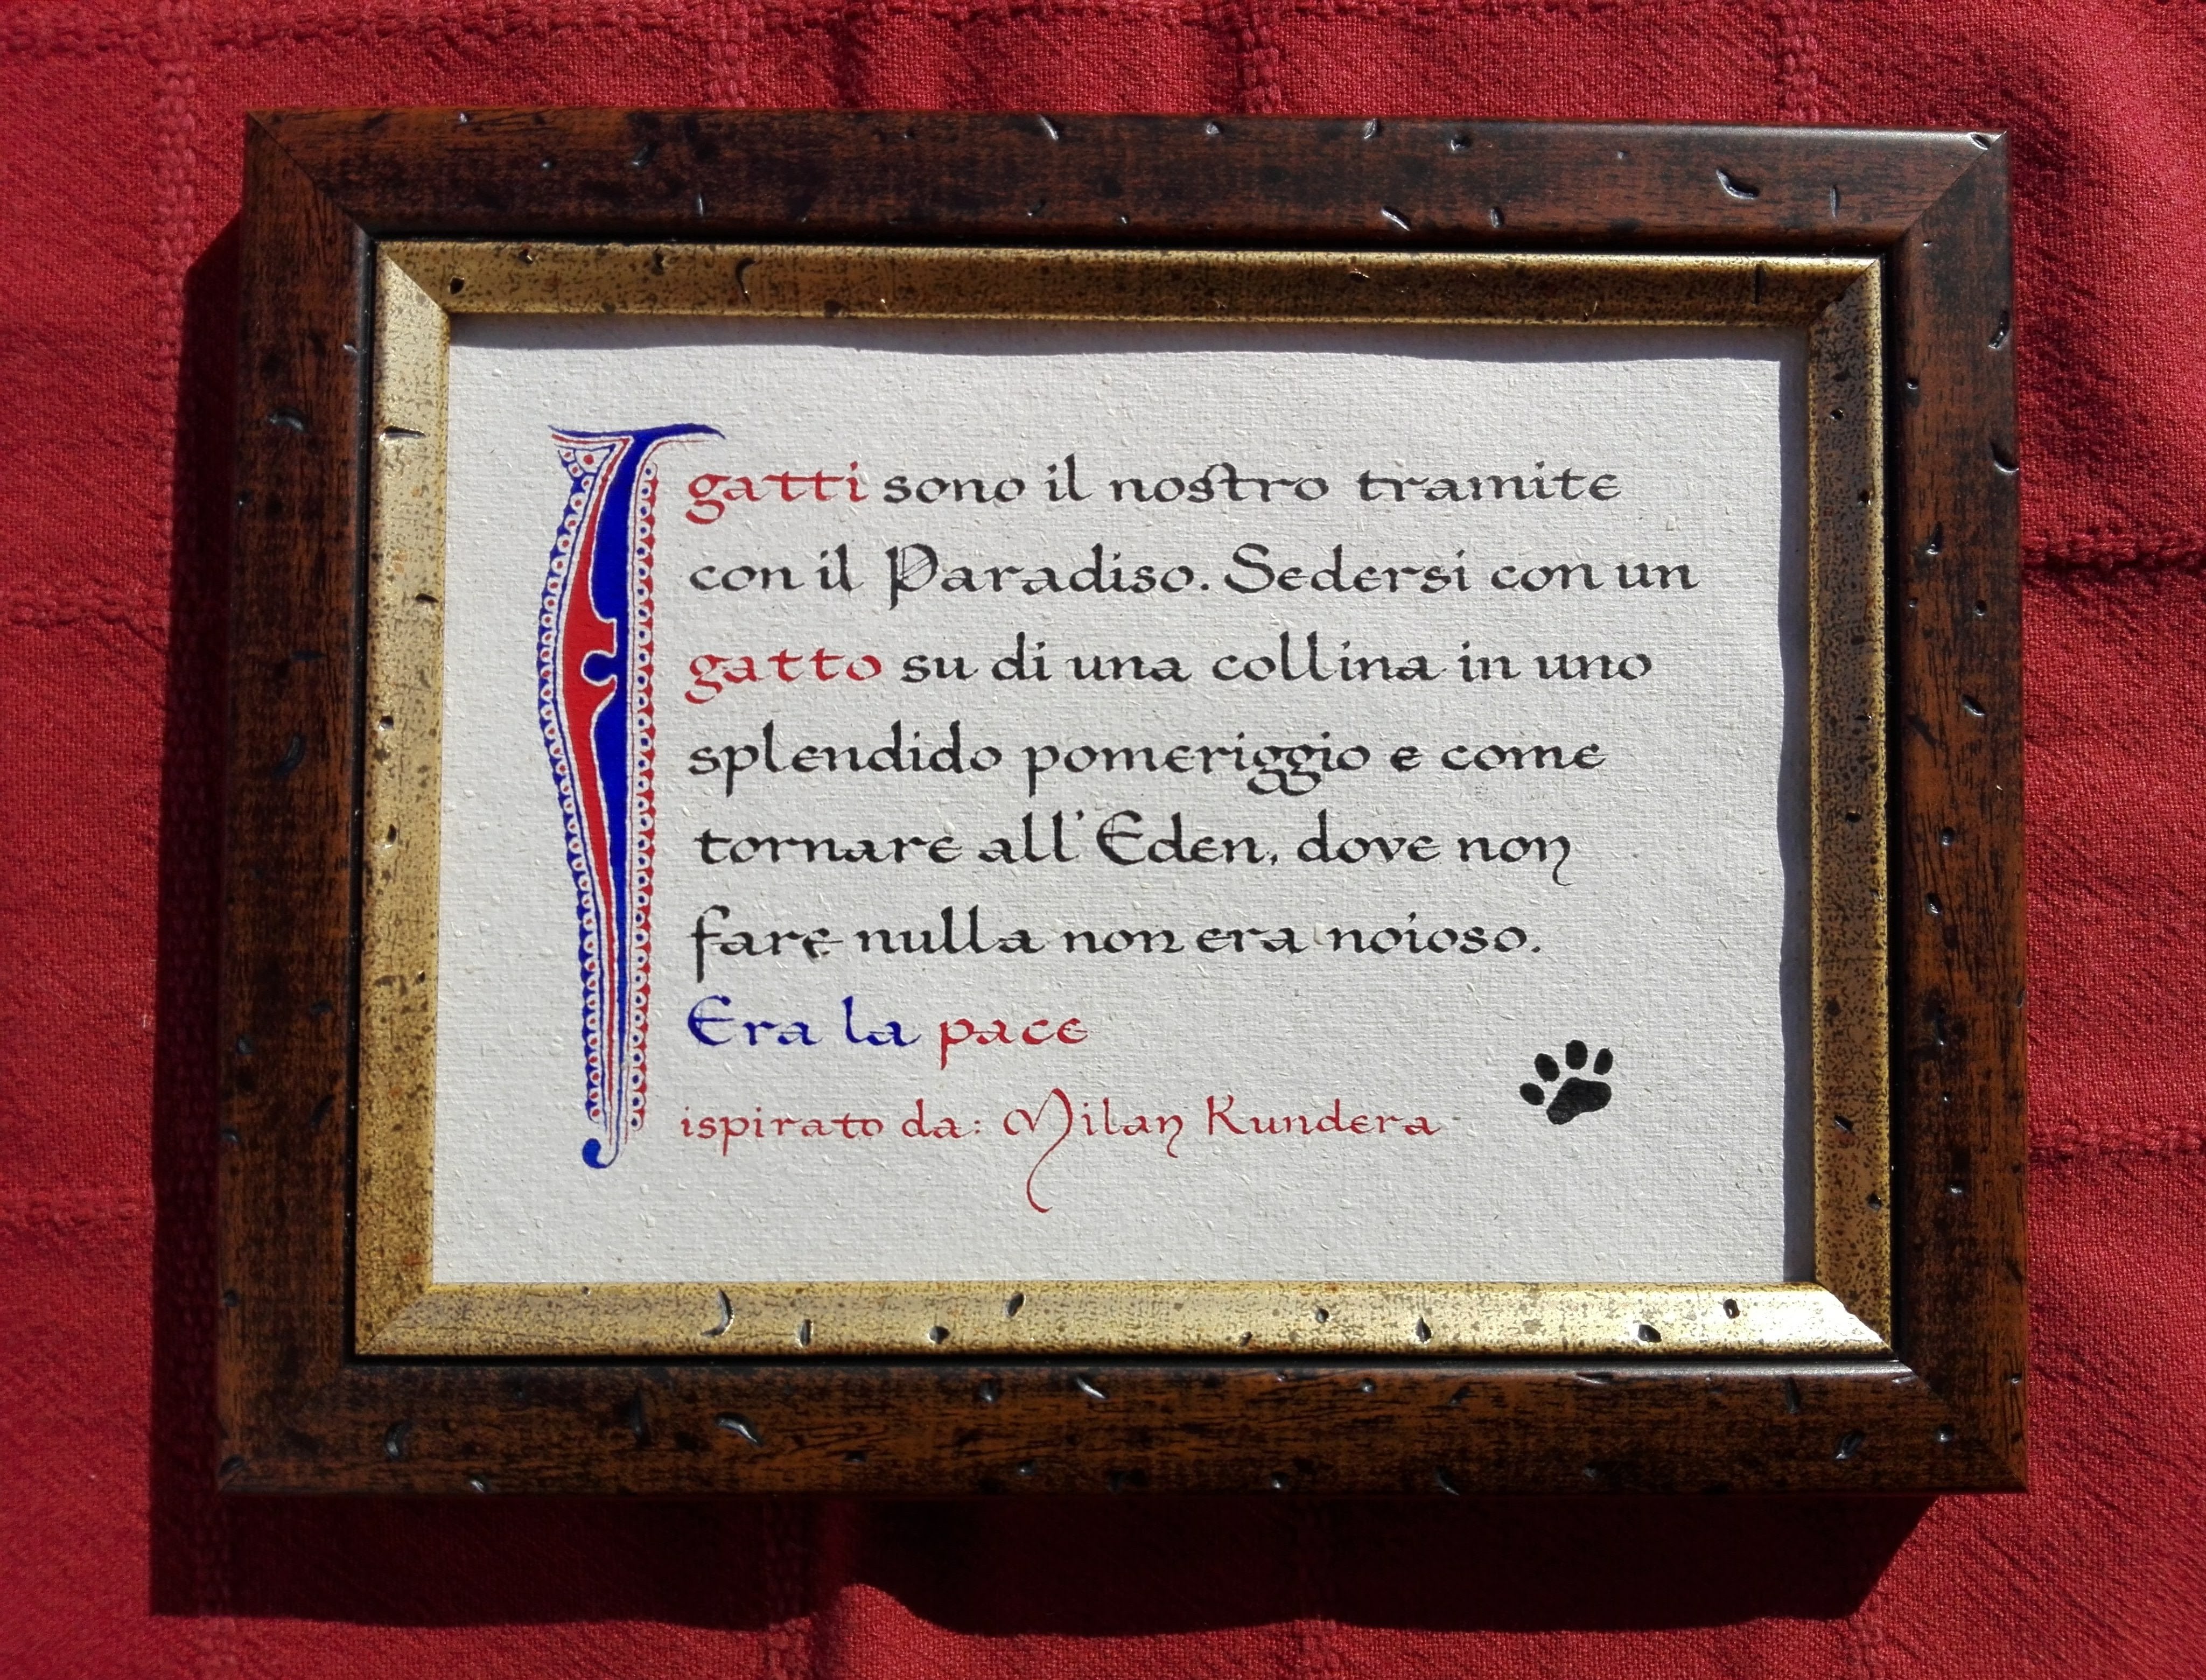 I gatti sono il nostro tramite
con il Paradiso. Sedersi con un
gatto su di una collina in uno
splendido pomeriggio e come
tornare all'Eden, dove non
fare nulla non era noioso.
Era la pace
ispirato da: Milan Kundera